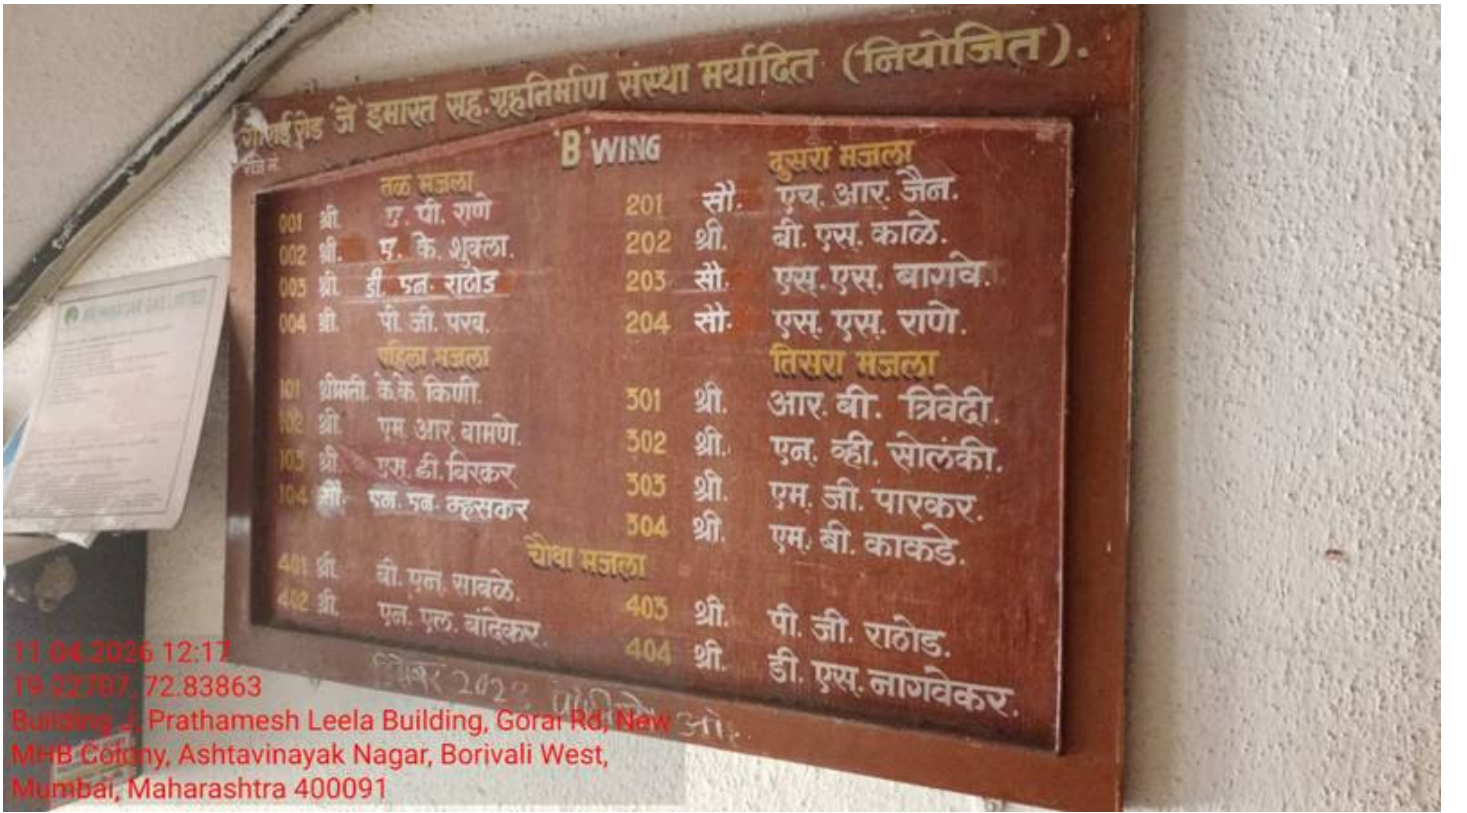 गोराई रोड 'जे' इमारत सह. गृहनिर्माण संस्था मर्यादित (नियोजित).
रजि नं.
'B' WING
तळ मजला
001 श्री. ए. पी. राणे
002 श्री. ए. के. शुक्ला.
003 श्री. डी. एन. राठोड
004 श्री. पी. जी. परब.
पहिला मजला
101 श्रीमती. के. के. किणी.
102 श्री. एम. आर. बामणे.
103 श्री. एस. डी. विरकर
104 सौ. एन. एन. म्हसकर
दुसरा मजला
201 सौ. एच. आर. जैन.
202 श्री. बी. एस. काळे.
203 सौ. एस. एस. बागवे.
204 सौ. एस. एस. राणे.
तिसरा मजला
301 श्री. आर. बी. त्रिवेदी.
302 श्री. एन. व्ही. सोलंकी.
303 श्री. एम. जी. पारकर.
304 श्री. एम. बी. काकडे.
चौथा मजला
401 श्री. बी. एन. साबळे.
402 श्री. एन. एल. बांदेकर.
403 श्री. पी. जी. राठोड.
404 श्री. डी. एस. नागवेकर.
2022
MAHANAGAR GAS LIMITED
11.04.2026 12:17
19.22707, 72.83863
Building J, Prathamesh Leela Building, Gorai Rd, New
MHB Colony, Ashtavinayak Nagar, Borivali West,
Mumbai, Maharashtra 400091